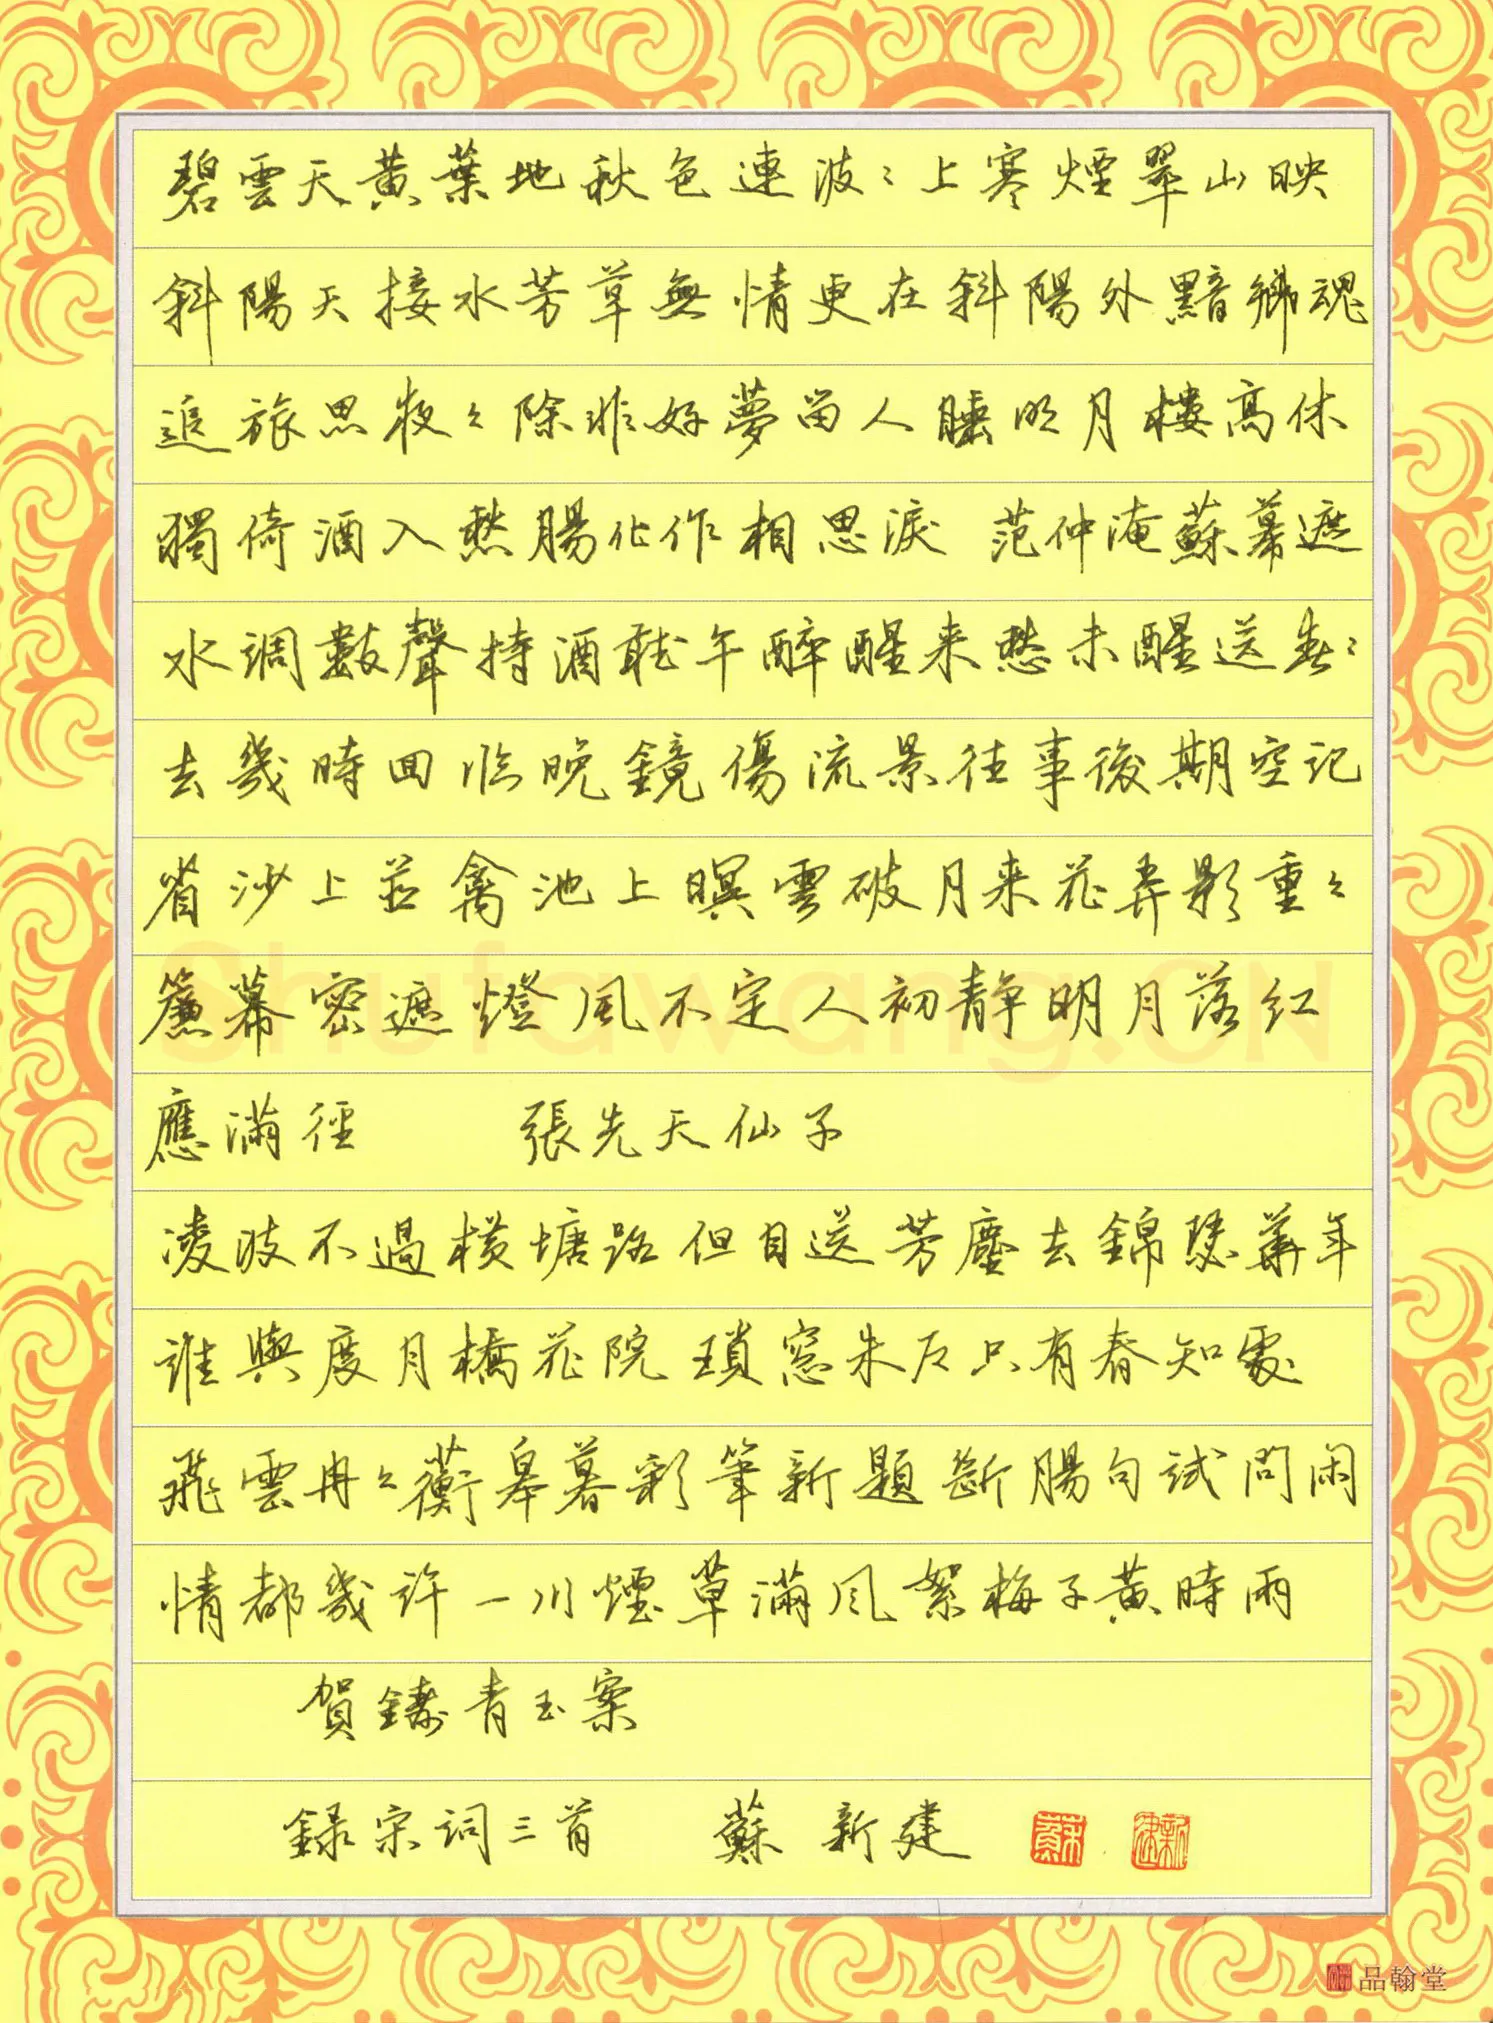 碧雲天黄葉地秋色連波々上寒煙翠山映
斜陽天接水芳草無情更在斜陽外黯鄉魂
追旅思夜々除非好夢留人睡明月樓高休
獨倚酒入愁腸化作相思淚 范仲淹蘇幕遮
水調數聲持酒聽午醉醒来愁未醒送春々
去幾時回临晚鏡傷流景往事後期空記
省沙上並禽池上暝雲破月来花弄影重々
簾幕密遮燈風不定人初静明月落红
應滿徑 張先天仙子
凌波不過横塘路但目送芳塵去錦瑟華年
誰與度月橋花院瑣窓朱户只有春知處
飛雲冉々蘅皋暮彩筆新題斷腸句试问闲
情都幾许一川煙草滿风絮梅子黄時雨
賀鑄青玉案
録宋词三首 蘇新建
蘇
新建
品翰堂
Shufawang.CN